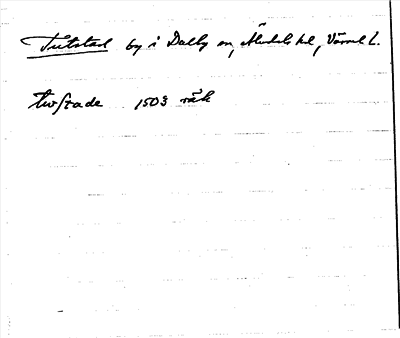 Tutstad by i Dalby sn, Älvdals hd, Värml L.
Twstade 1503 räk